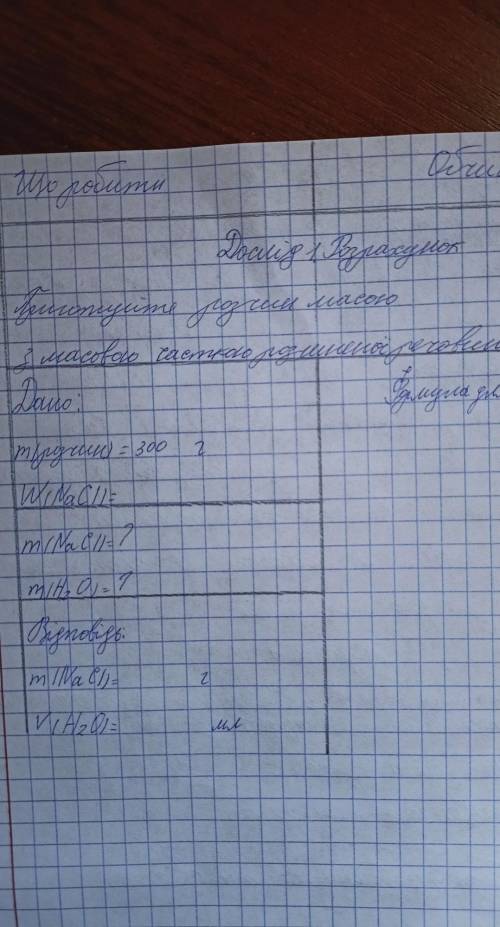 Що робити
Обчи
Дослід 1. Розрахунок
Приготуйте розчин масою
з масовою часткою розчиненої речовин
Дано:
Формула дл
m(розчин) = 300 г
W(NaCl)=
m(NaCl)=?
m(H₂O)=?
Відповідь:
m(NaCl)= г
V(H₂O)= мл